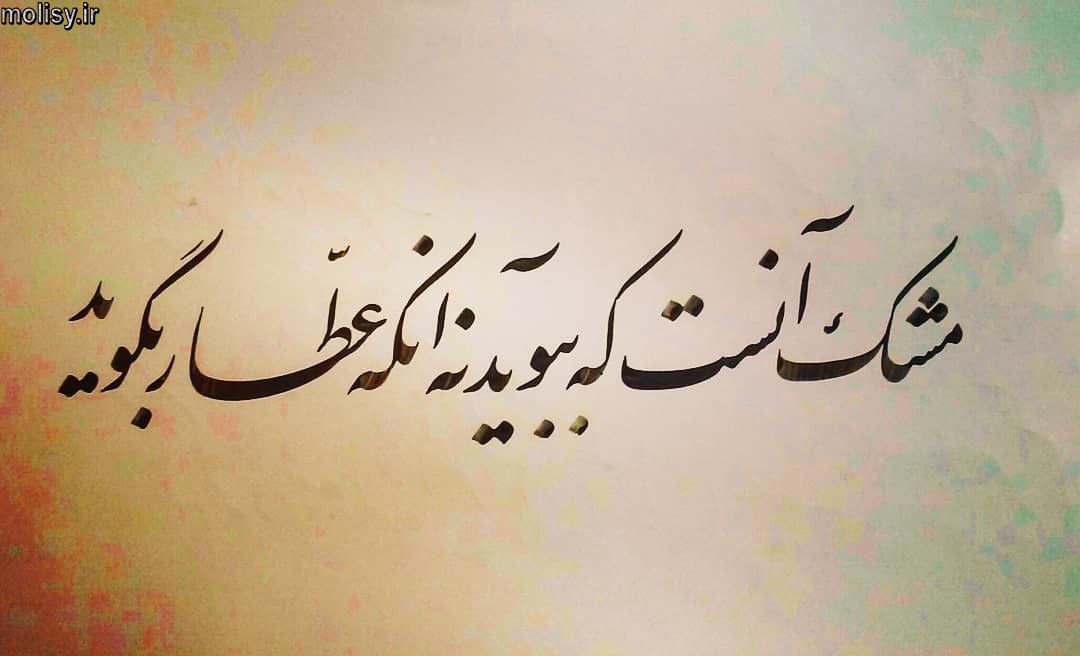 molisy.ir
مشک آنست که ببوید نه آنکه عطّار بگوید